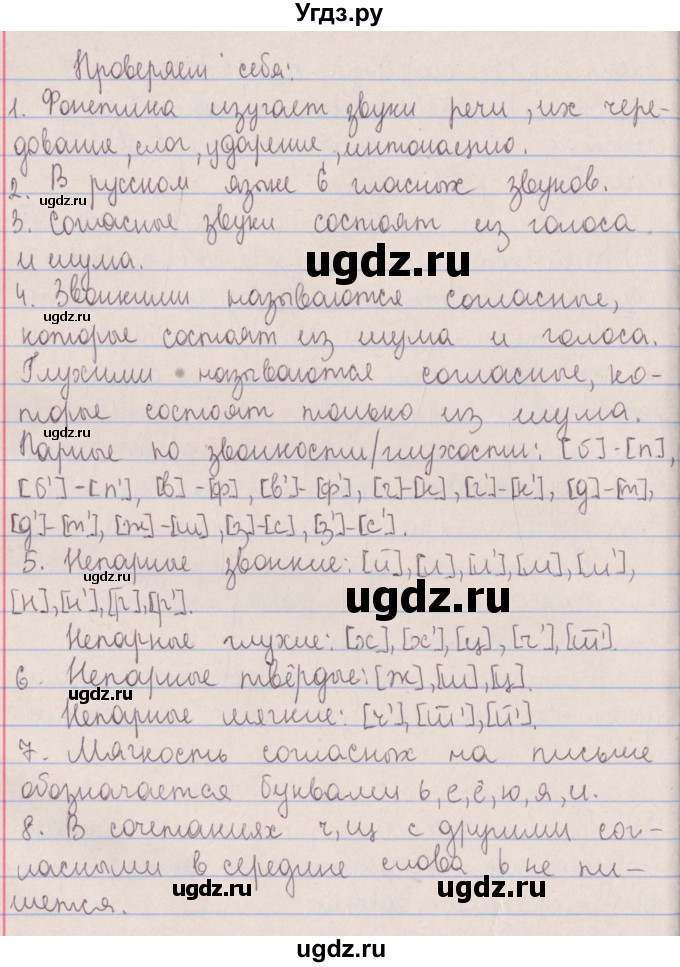 Угдз.ру
Проверяем себя:
1. Фонетика изучает звуки речи, их чере-
дование, слог, ударение, интонацию.
2. В русском языке 6 гласных звуков.
ugdz.ru
3. Согласные звуки состоят из голоса
и шума.
ugdz.ru
4. Звонкими называются согласные,
которые состоят из шума и голоса.
ugdz.ru
Глухими называются согласные, ко-
торые состоят только из шума.
ugdz.ru
Парные по звонкости/глухости: [б]-[п],
[б']-[п'], [в]-[ф], [в']-[ф'], [г]-[к], [г']-[к'], [д]-[т],
[д']-[т'], [ж]-[ш], [з]-[с], [з']-[с'].
5. Непарные звонкие: [й], [л], [л'], [м], [м'],
ugdz.ru
[н], [н'], [р], [р'].
ugdz.ru
Непарные глухие: [х], [х'], [ц], [ч'], [ш̅'].
6. Непарные твёрдые: [ж], [ш], [ц].
ugdz.ru
Непарные мягкие: [ч'], [ш̅'], [й'].
7. Мягкость согласных на письме
обозначается буквами ь, е, ё, ю, я, и.
8. В сочетаниях ч, щ с другими сог-
ласными в середине слова ь не пи-
ugdz.ru
ugdz.ru
шется.
ugdz.ru